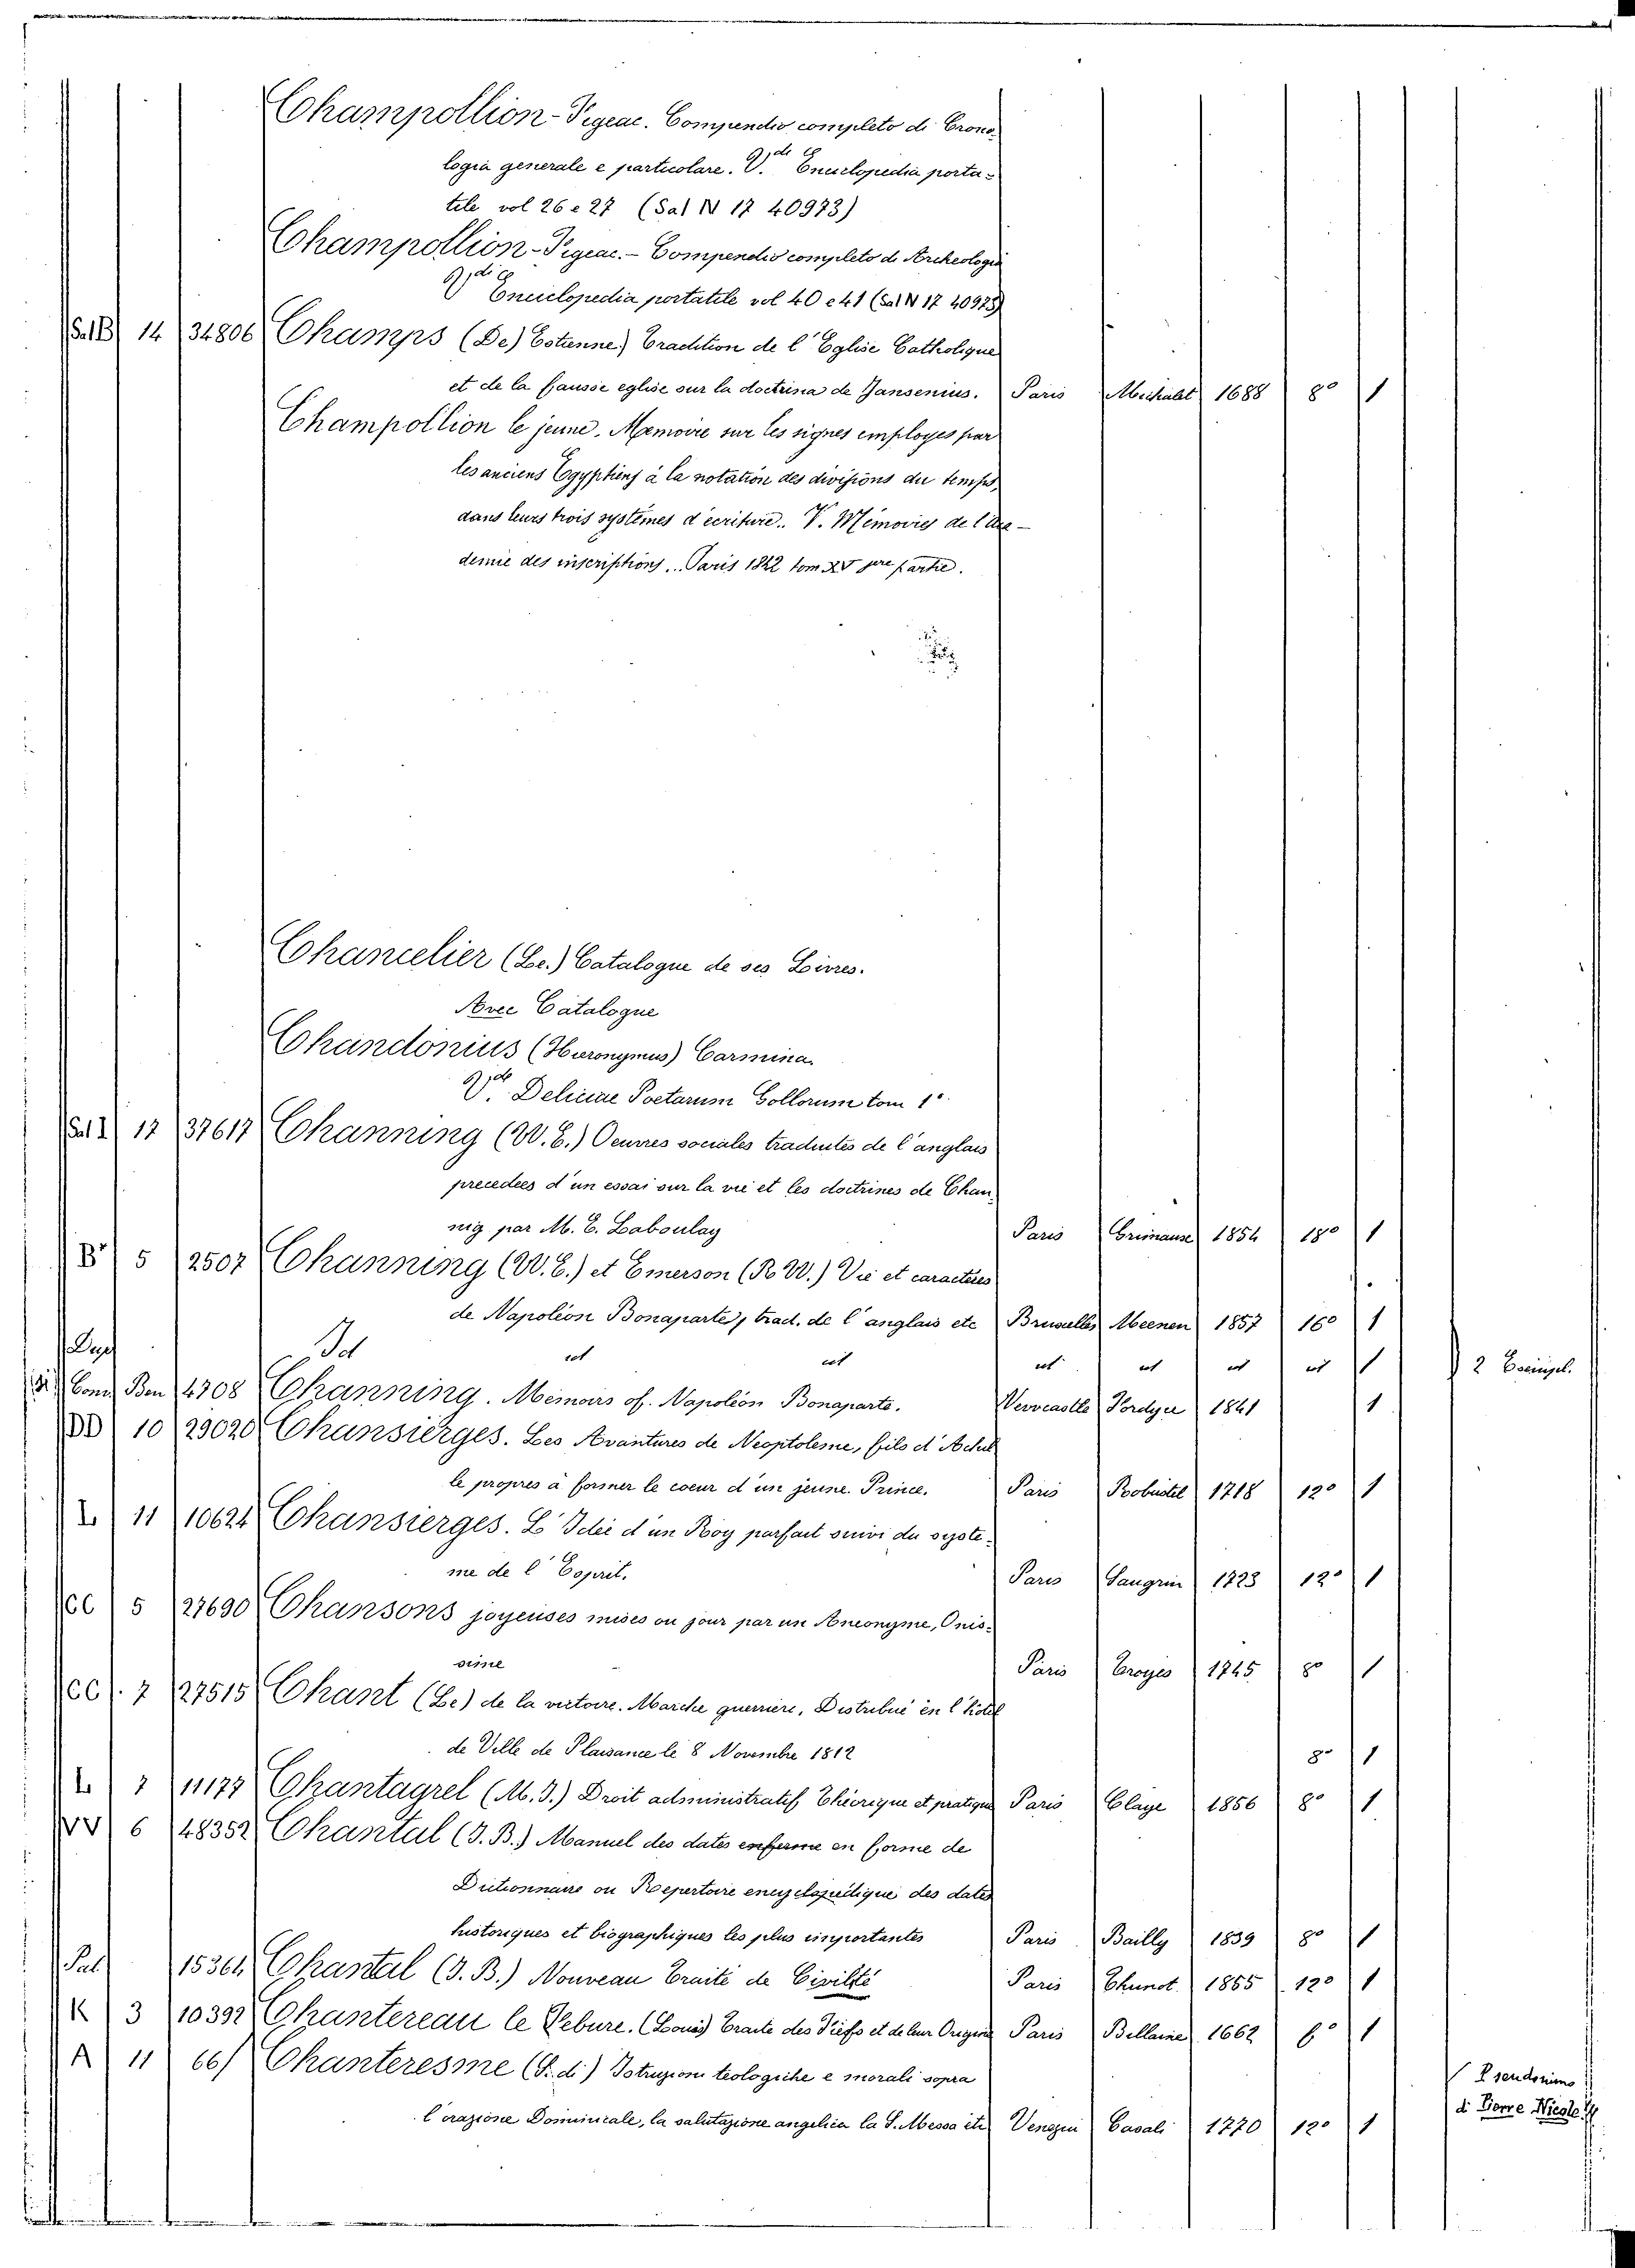 Champollion-Figeac. Compendio completo di Crono-
logia generale e particolare. V.di Enciclopedia porta-
tile vol 26 e 27 (Sal N 17 40973)
Champollion-Figeac. - Compendio completo di Archeologia
V.di Enciclopedia portatile vol 40 e 41 (Sal N 17 40973)
Sal B 14 34806 Champs (De) Estienne) Tradition de l'Eglise Catholique
et de la fausse eglise sur la doctrina de Jansenius. Paris Michalet 1688 8° 1
Champollion le jeune. Memoire sur les signes employes par
les anciens Egyptiens à la notation des divisions du temps,
dans leurs trois systèmes d'écriture.. V. Mémoires de l'Aca-
demie des inscriptions... Paris 1822 tom XV 1ere partie.
Chancelier (Le.) Catalogue de ses Livres.
Avec Catalogue
Chandonius (Hieronymus) Carmina
V.de Deliciae Poetarum Gollorum tom 1°
Sal I 17 37617 Channing (W. E.) Oeuvres sociales traduites de l'anglais
precedees d'un essai sur la vie et les doctrines de Chan-
nig par M. E. Laboulay Paris Grimause 1854 18° 1
B" 5 2507 Channing (W. E.) et Emerson (R. W.) Vie et caracteres
de Napoléon Bonaparte, trad. de l'anglais etc Bruxelles Meenen 1857 16° 1
Dup Id ut ut ut ut ut ut 1 2 Esempl.
Cons Ben 4708 Channing. Memoirs of. Napoléon Bonaparte. Newcastle Fordyce 1841 1
DD 10 29020 Chansierges. Les Avantures de Neoptoleme, fils d'Achil
le propres à former le coeur d'un jeune Prince. Paris Robustel 1718 12° 1
L 11 10621 Chansierges. L'Idée d'un Roy parfait suivi du syste-
me de l'Esprit. Paris Saugrin 1723 12° 1
CC 5 27690 Chansons joyeuses mises ou jour par un Aneonyme, Onis-
sime Paris Troyes 1745 8° 1
CC. 7 27515 Chant (Le) de la victoire. Marche guerriere, Distribué en l'hotel
de Ville de Plaisance le 8 Novembre 1812 8° 1
L 7 11177 Chantagrel (M. J.) Droit administratif Théorique et pratique Paris Claye 1856 8° 1
VV 6 48352 Chantal (J. B.) Manuel des dates en forme de
Dictionnaire ou Repertoire encyclopedique des dates
historiques et biographiques les plus importantes Paris Bailly 1839 8° 1
Sal 15364 Chantal (J. B.) Nouveau Traité de Civilité Paris Thunot. 1855 12° 1
K 3 10392 Chantereau le Febure. (Louis) Traite des Fiefs et de leur Origine Paris Billaine 1662 f° 1
A 11 66 Chanteresme (S. di) Istruzioni teologiche e morali sopra
l'orazione Dominicale, la salutazione angelica la S. Messa etc Venezia Casali 1770 12° 1
Pseudonimo
di Pierre Nicole